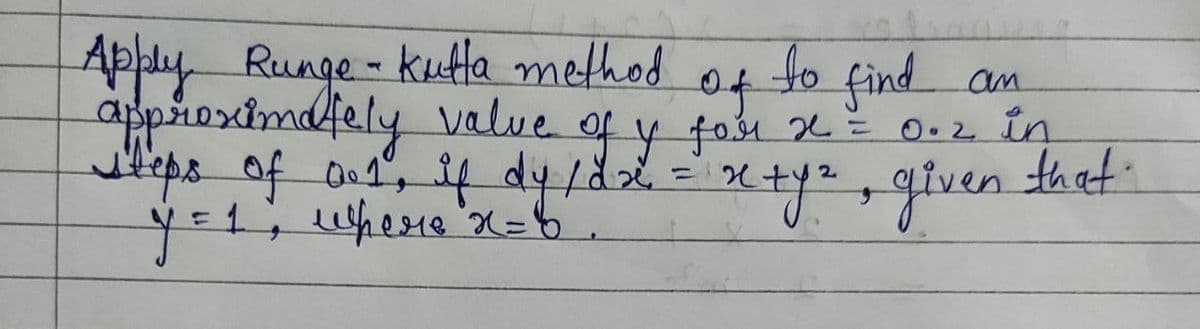 Apply Runge-Kutta method of to find an
approximately value of y for x = 0.2 in
steps of 0.1, if dy/dx = x+y², given that
y=1, where x=0.